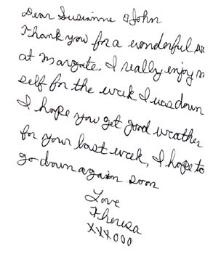 Dear Susianne & John
Thank you for a wonderful
at Margate. I really enjoy m
self for the week I was down
I hope you get good weather
for your last week, I hope to
go down again soon
Love
Theresa
xxx000